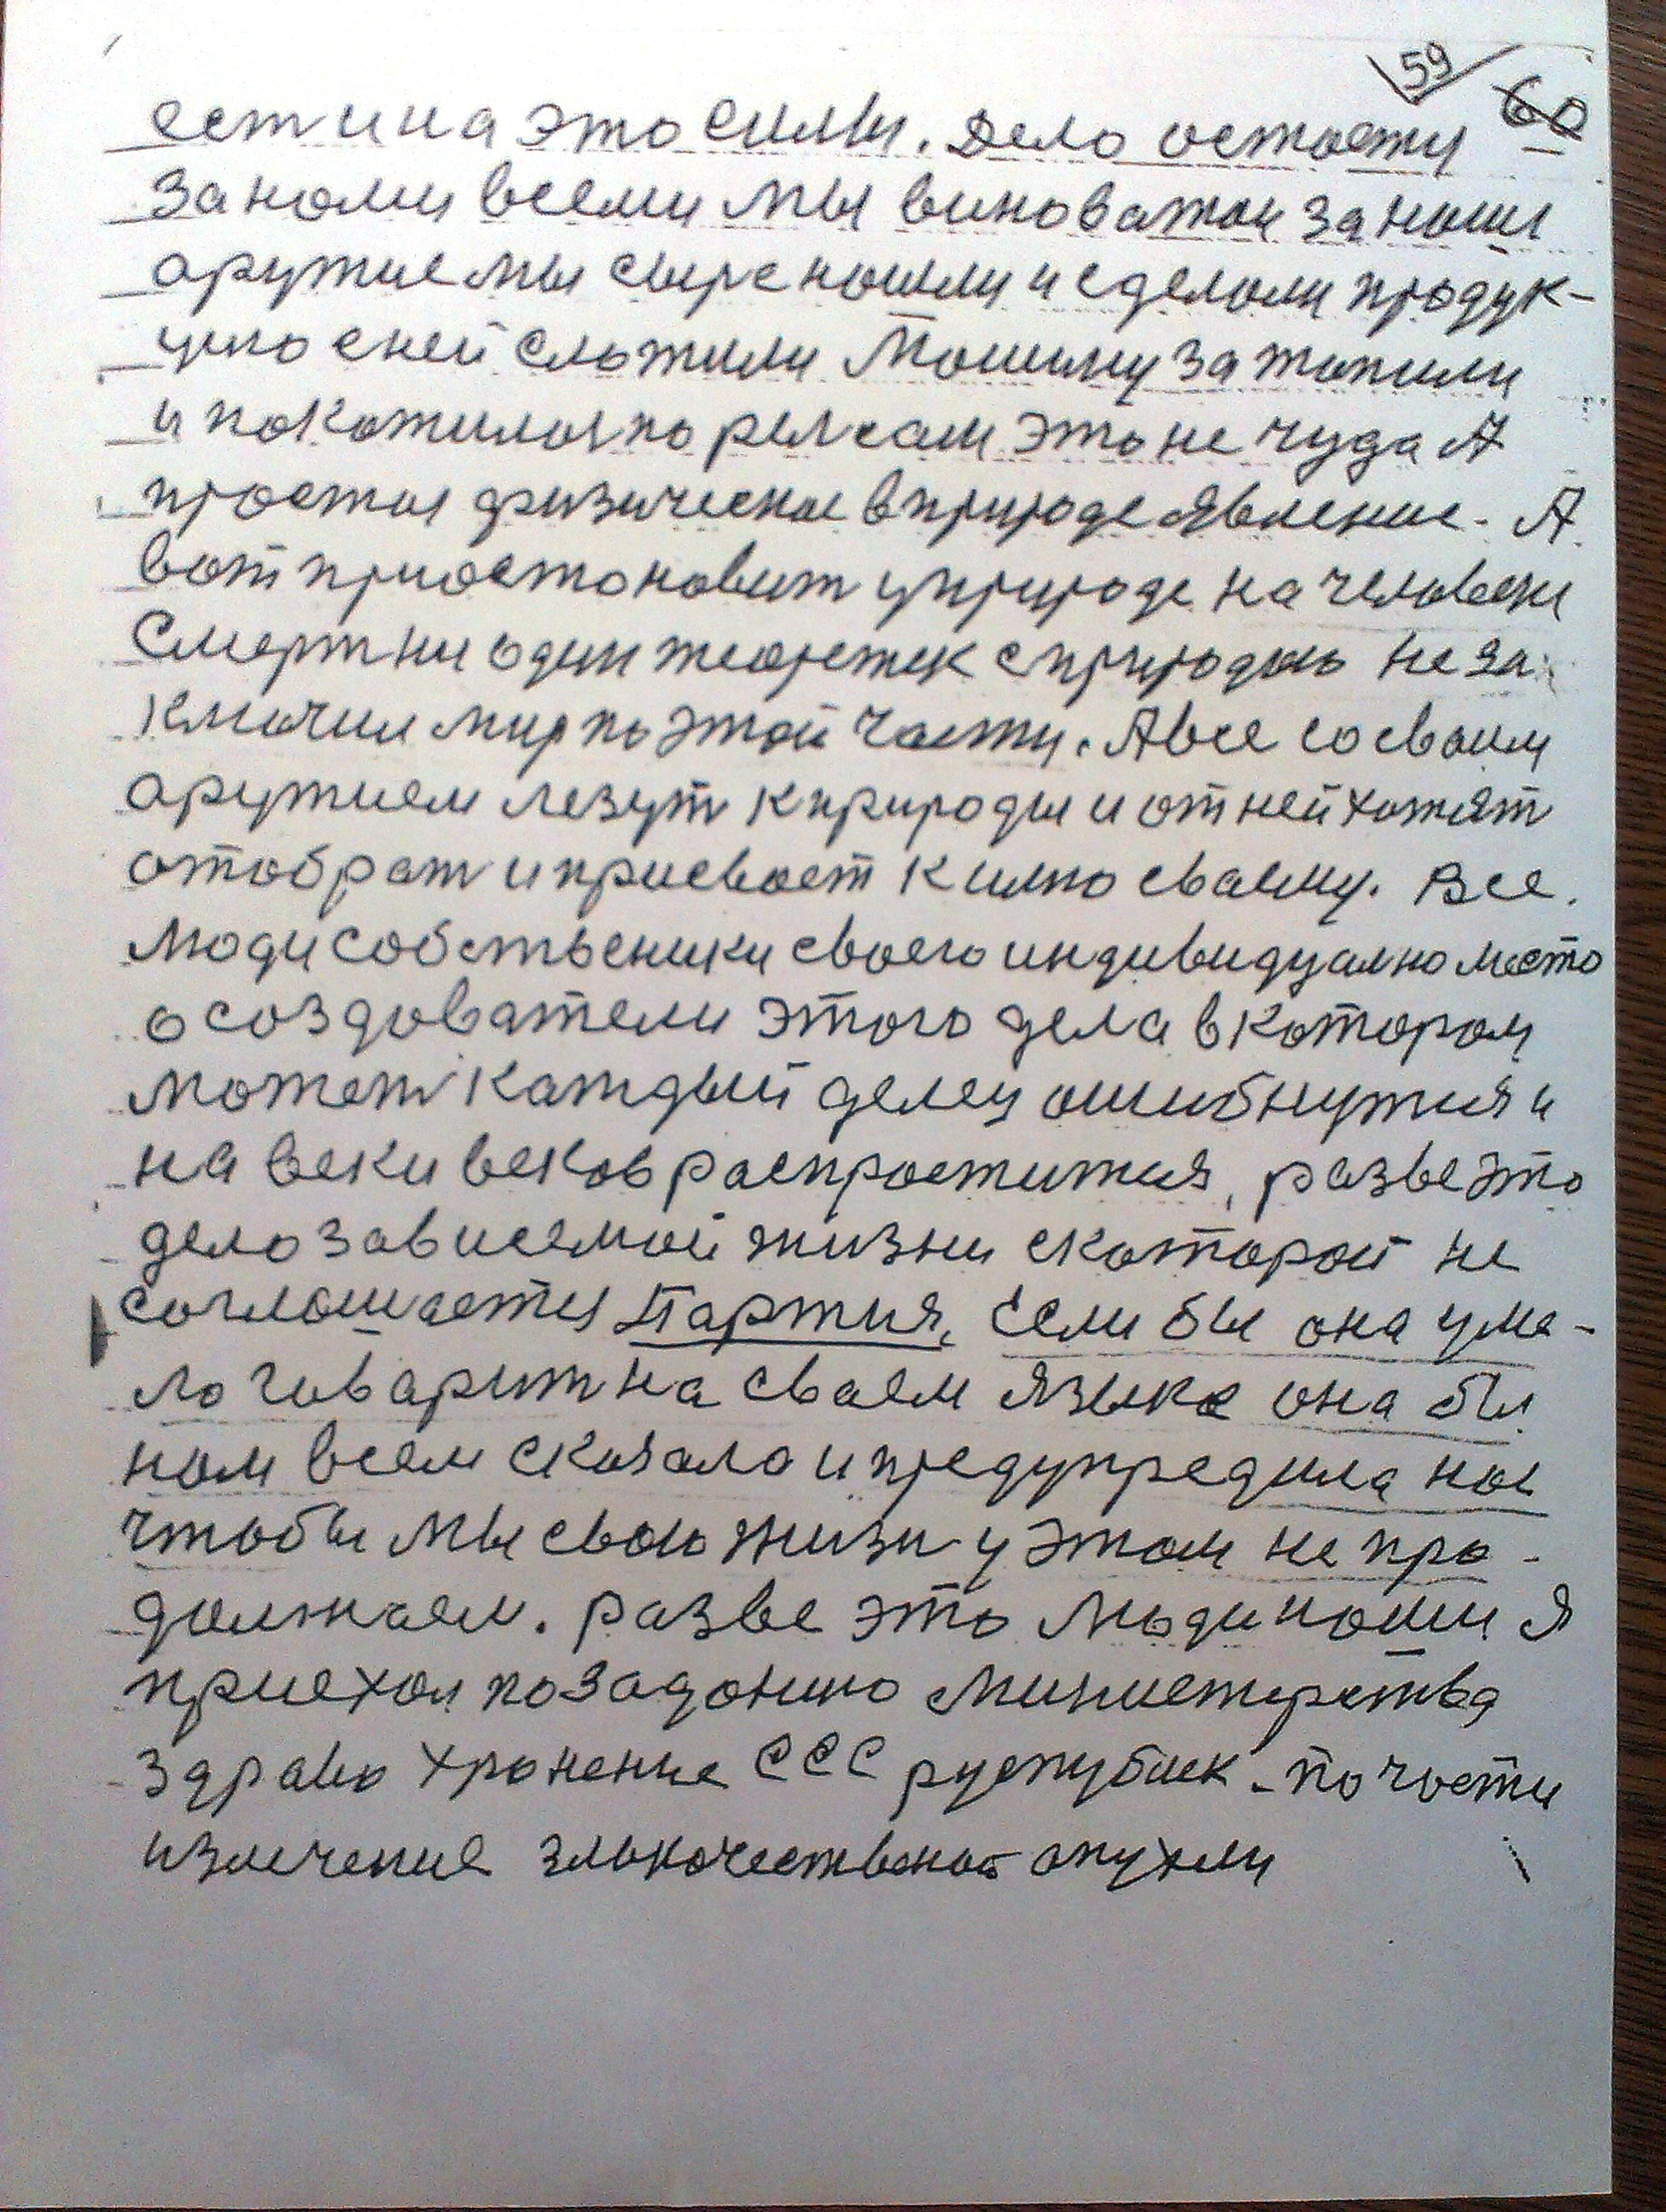 59 60
ест и на это силы. Дело остоеться
Заноми всеми мы виноватои за ноши
аружие мы сырс ношли и сделоли продук-
цию с ней сложили Мошину затопили
и покотилося по релсам это не чуда А
простое физическое в природе явление. А
вот приостоновит у природе на человеке
Смерт ни один теоретек с природою не за
ключил мир по этой части. А все со своим
аружием лезут к природы и от ней хотят
отобрат и присвоет к имю сваему. Все
люди собствсники своего индивидуално место
о создователи этого дела в котором
может каждый делец ошибнутися и
на веки веков распроститися, разве это
дело зависемой жизни с которой не
соглошается Партия, Если бы она уме-
ло говарит на сваем языке она бы
ном всем сказало и предупредила нос
чтобы мы свою жизн у этом не про-
должаем. разве это люди ноши Я
приехол по задонию Министерства
Здраво хронение ССС руспублек. по чости
излечение злокочественой опухли